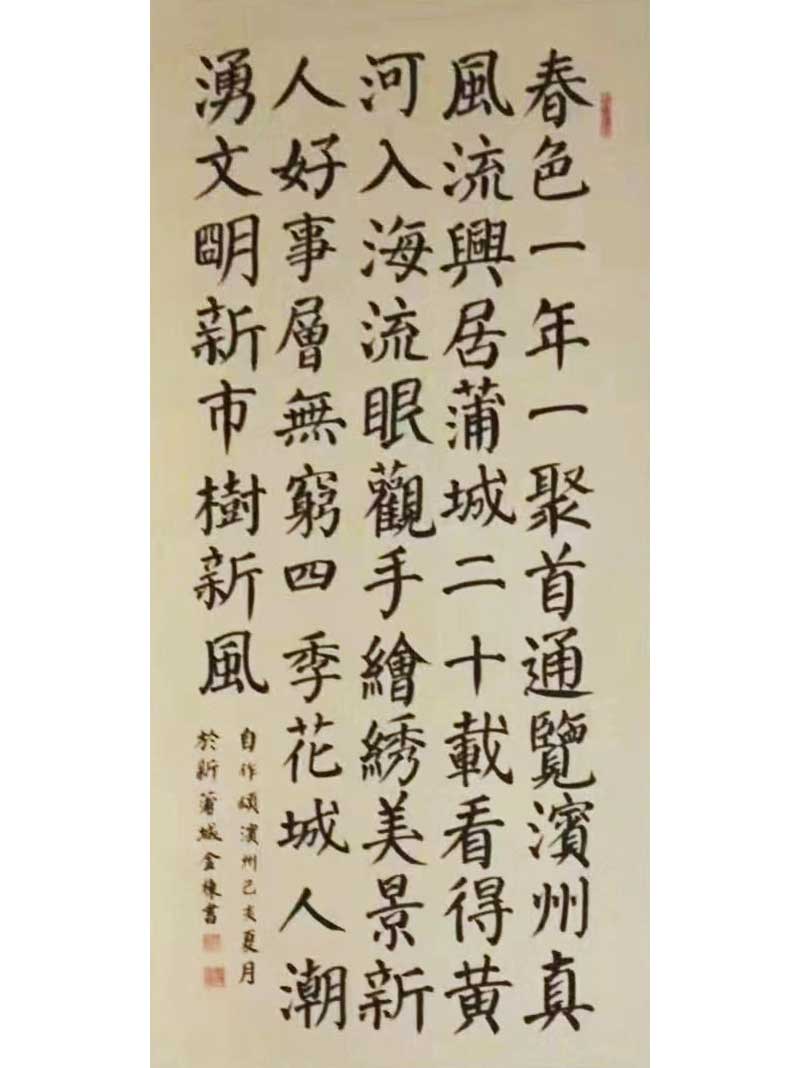 春色一年一聚首通覽濱州真
風流興居蒲城二十載看得黃
河入海流眼觀手繪綉美景新
人好事層無窮四季花城人潮
湧文明新市樹新風
自作頌濱州己亥夏月
於新蒲城金棟書